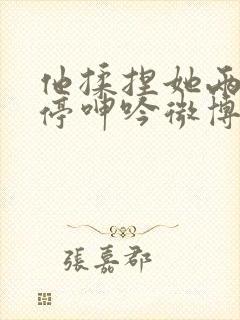 他揉捏她两
停呻吟微博
張嘉郡